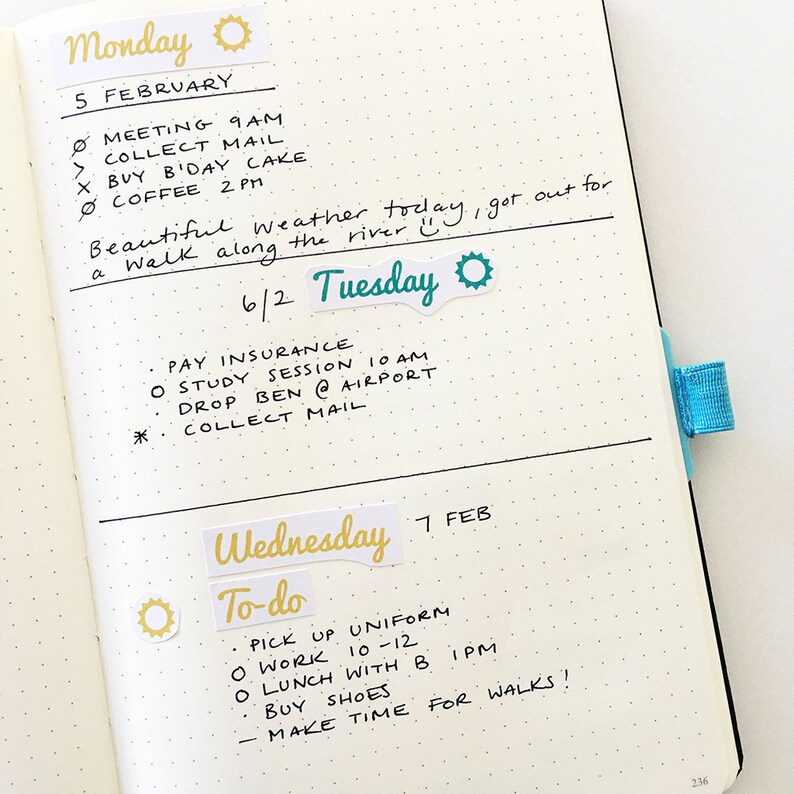 Monday
5 FEBRUARY
Ø MEETING 9AM
> COLLECT MAIL
X BUY B'DAY CAKE
Ø COFFEE 2PM
Beautiful weather today, got out for
a walk along the river ☺
6/2 Tuesday
· PAY INSURANCE
O STUDY SESSION 10AM
· DROP BEN @ AIRPORT
* · COLLECT MAIL
Wednesday 7 FEB
To-do
· PICK UP UNIFORM
O WORK 10-12
O LUNCH WITH B 1PM
· BUY SHOES
— MAKE TIME FOR WALKS!
236